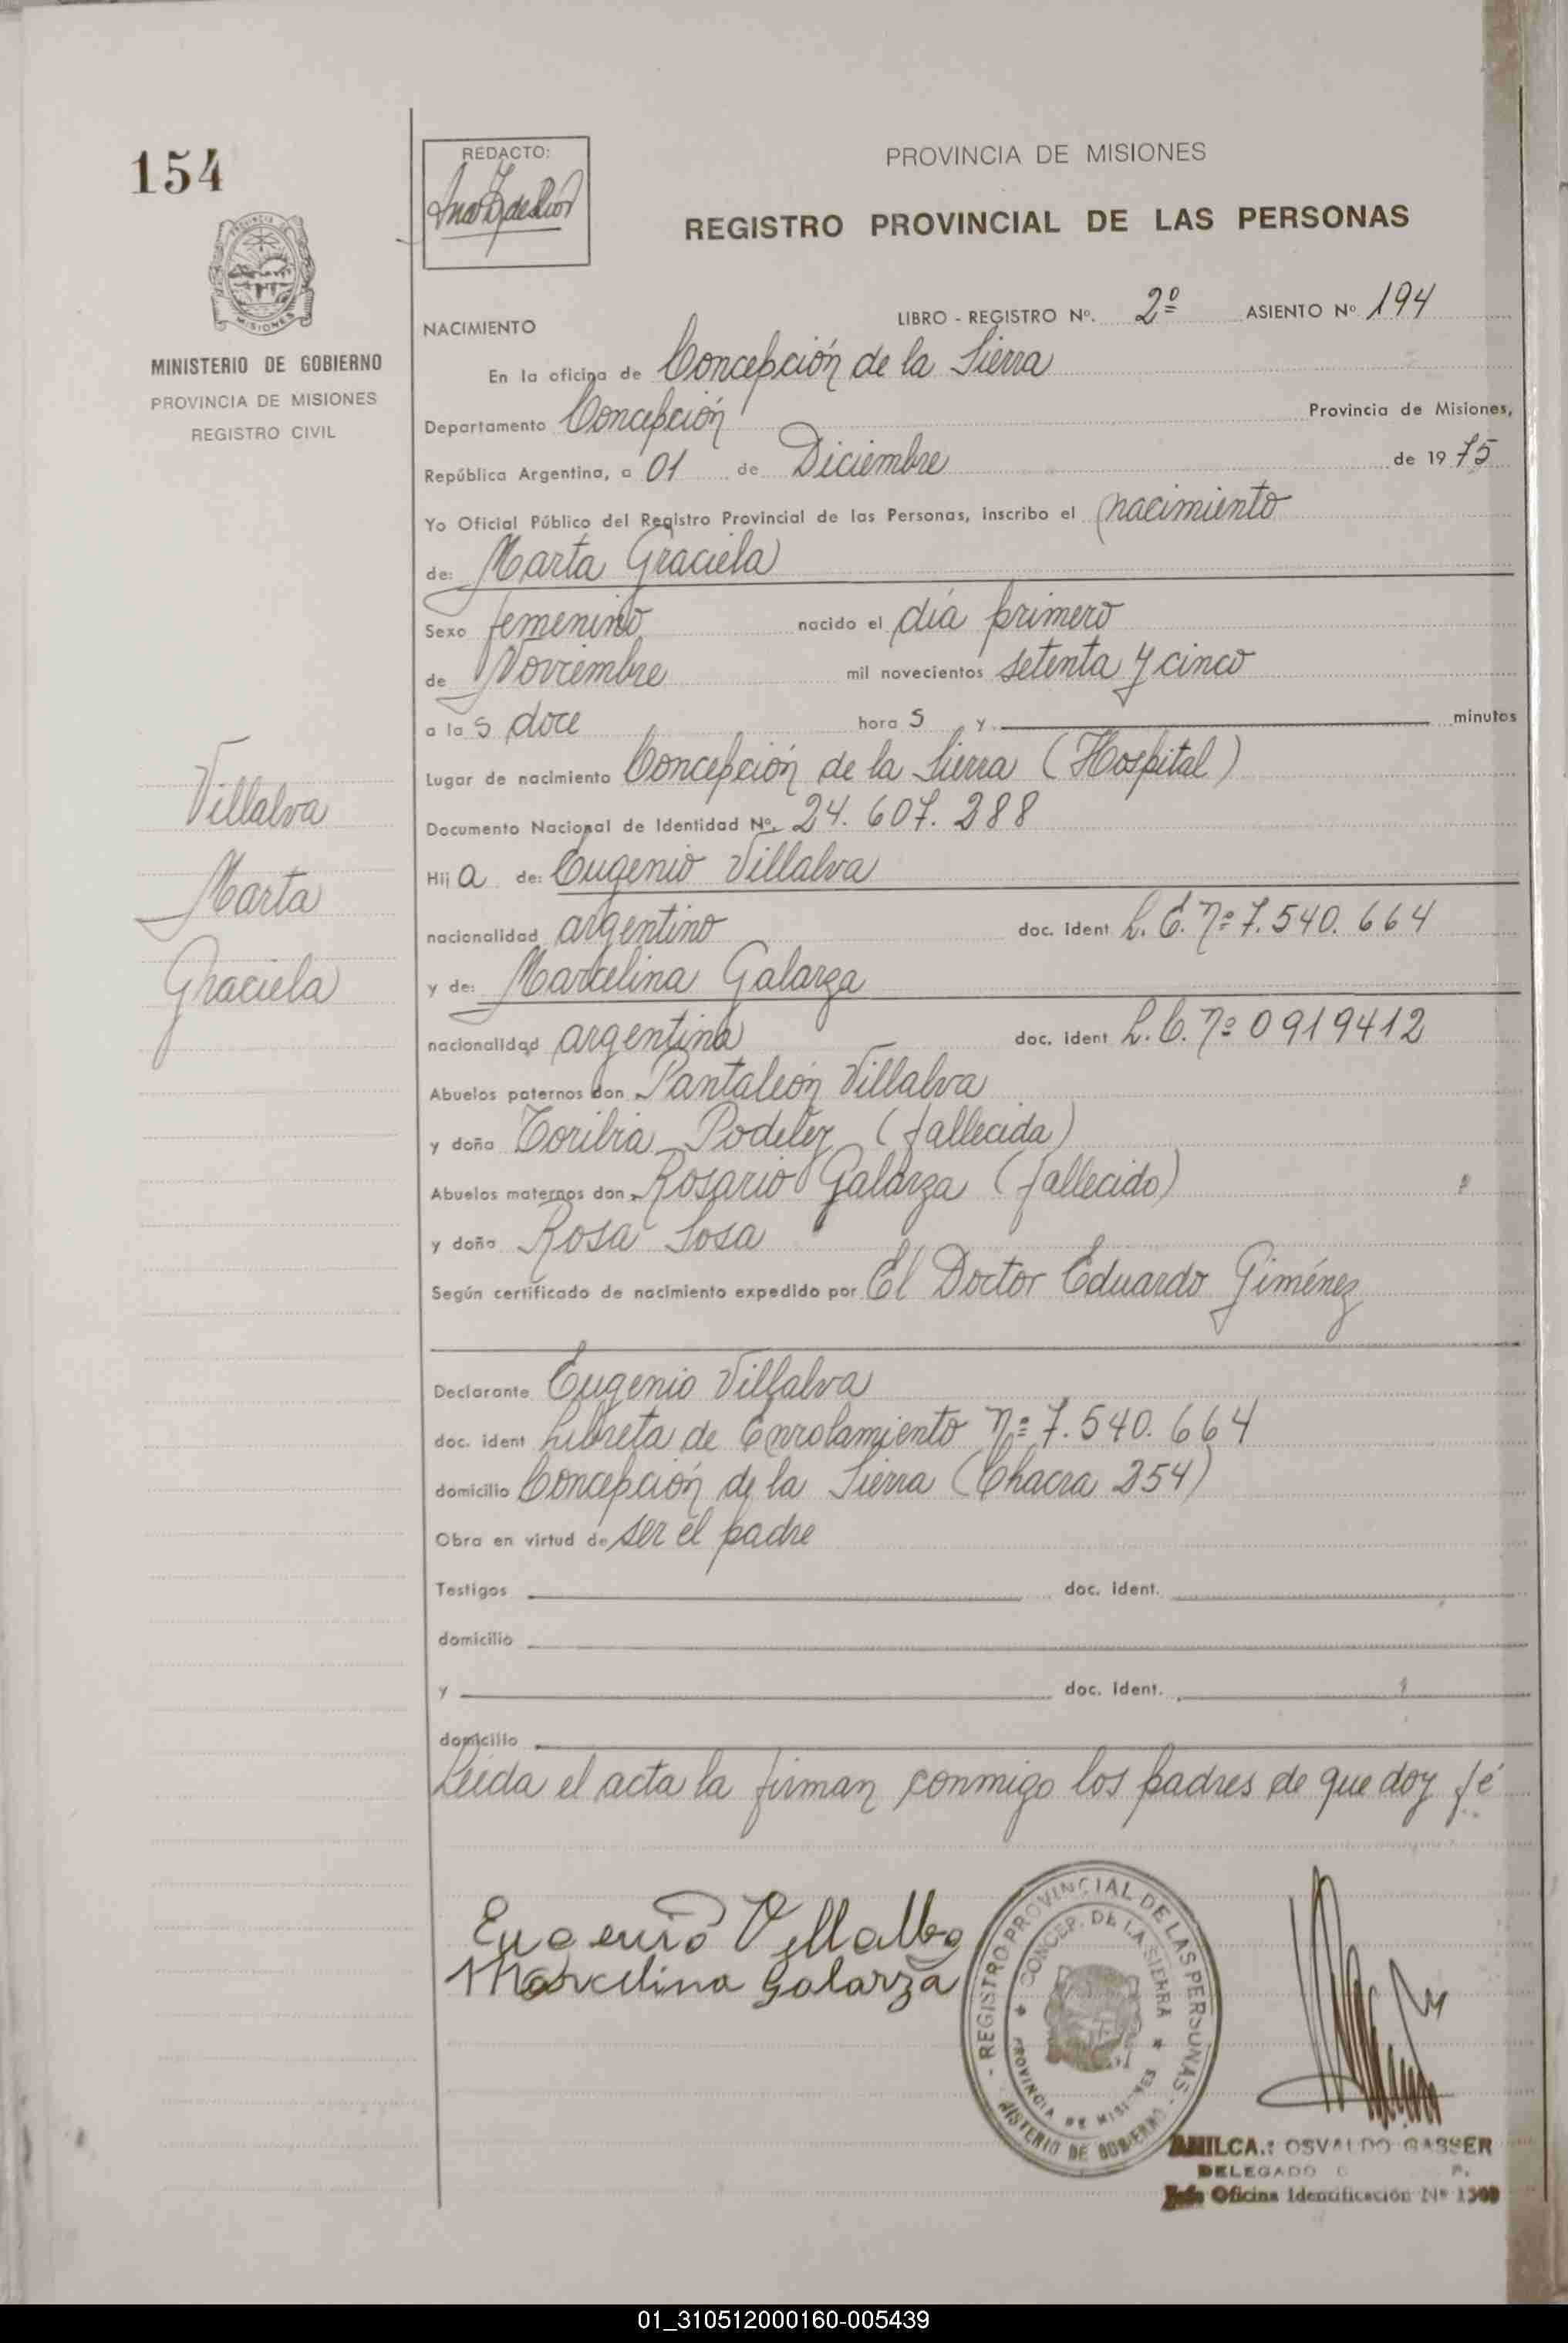 154
REDACTO:
PROVINCIA DE MISIONES
REGISTRO PROVINCIAL DE LAS PERSONAS
MISIONES
MINISTERIO DE GOBIERNO
PROVINCIA DE MISIONES
REGISTRO CIVIL
LIBRO - REGISTRO Nº. 2º ASIENTO Nº 194
NACIMIENTO
En la oficina de Concepción de la Sierra
Departamento Concepción Provincia de Misiones,
República Argentina, a 01 de Diciembre de 19 75
Yo Oficial Público del Registro Provincial de las Personas, inscribo el nacimiento
de: Marta Graciela
Sexo femenino nacido el día primero
de Noviembre mil novecientos setenta y cinco
a la s doce hora s y minutos
Lugar de nacimiento Concepción de la Sierra (Hospital)
Villalva
Marta
Graciela
Documento Nacional de Identidad Nº. 24.607.288
Hij a de: Eugenio Villalva
nacionalidad argentino doc. ident L. E. nº 7.540.664
y de: Marcelina Galarza
nacionalidad argentina doc. ident L. C. nº 0919412
Abuelos paternos don Pantaleón Villalva
y doña Toribia Podeley (fallecida)
Abuelos maternos don Rosario Galarza (fallecido)
y doña Rosa Sosa
Según certificado de nacimiento expedido por El Doctor Eduardo Giménez
Declarante Eugenio Villalva
doc. ident Libreta de Enrolamiento nº 7.540.664
domicilio Concepción de la Sierra (Chacra 254)
Obra en virtud de ser el padre
Testigos doc. ident.
domicilio
y doc. ident.
domicilio
Leída el acta la firman conmigo los padres de que doy fé
Eugenio Villalba
Marcelina Galarza
REGISTRO PROVINCIAL DE LAS PERSONAS
CONCEP. DE LA SIERRA
PROVINCIA DE MISIONES
MINISTERIO DE GOBIERNO
OSVALDO GASSER
DELEGADO
Jefe Oficina Identificación Nº
01_310512000160-005439